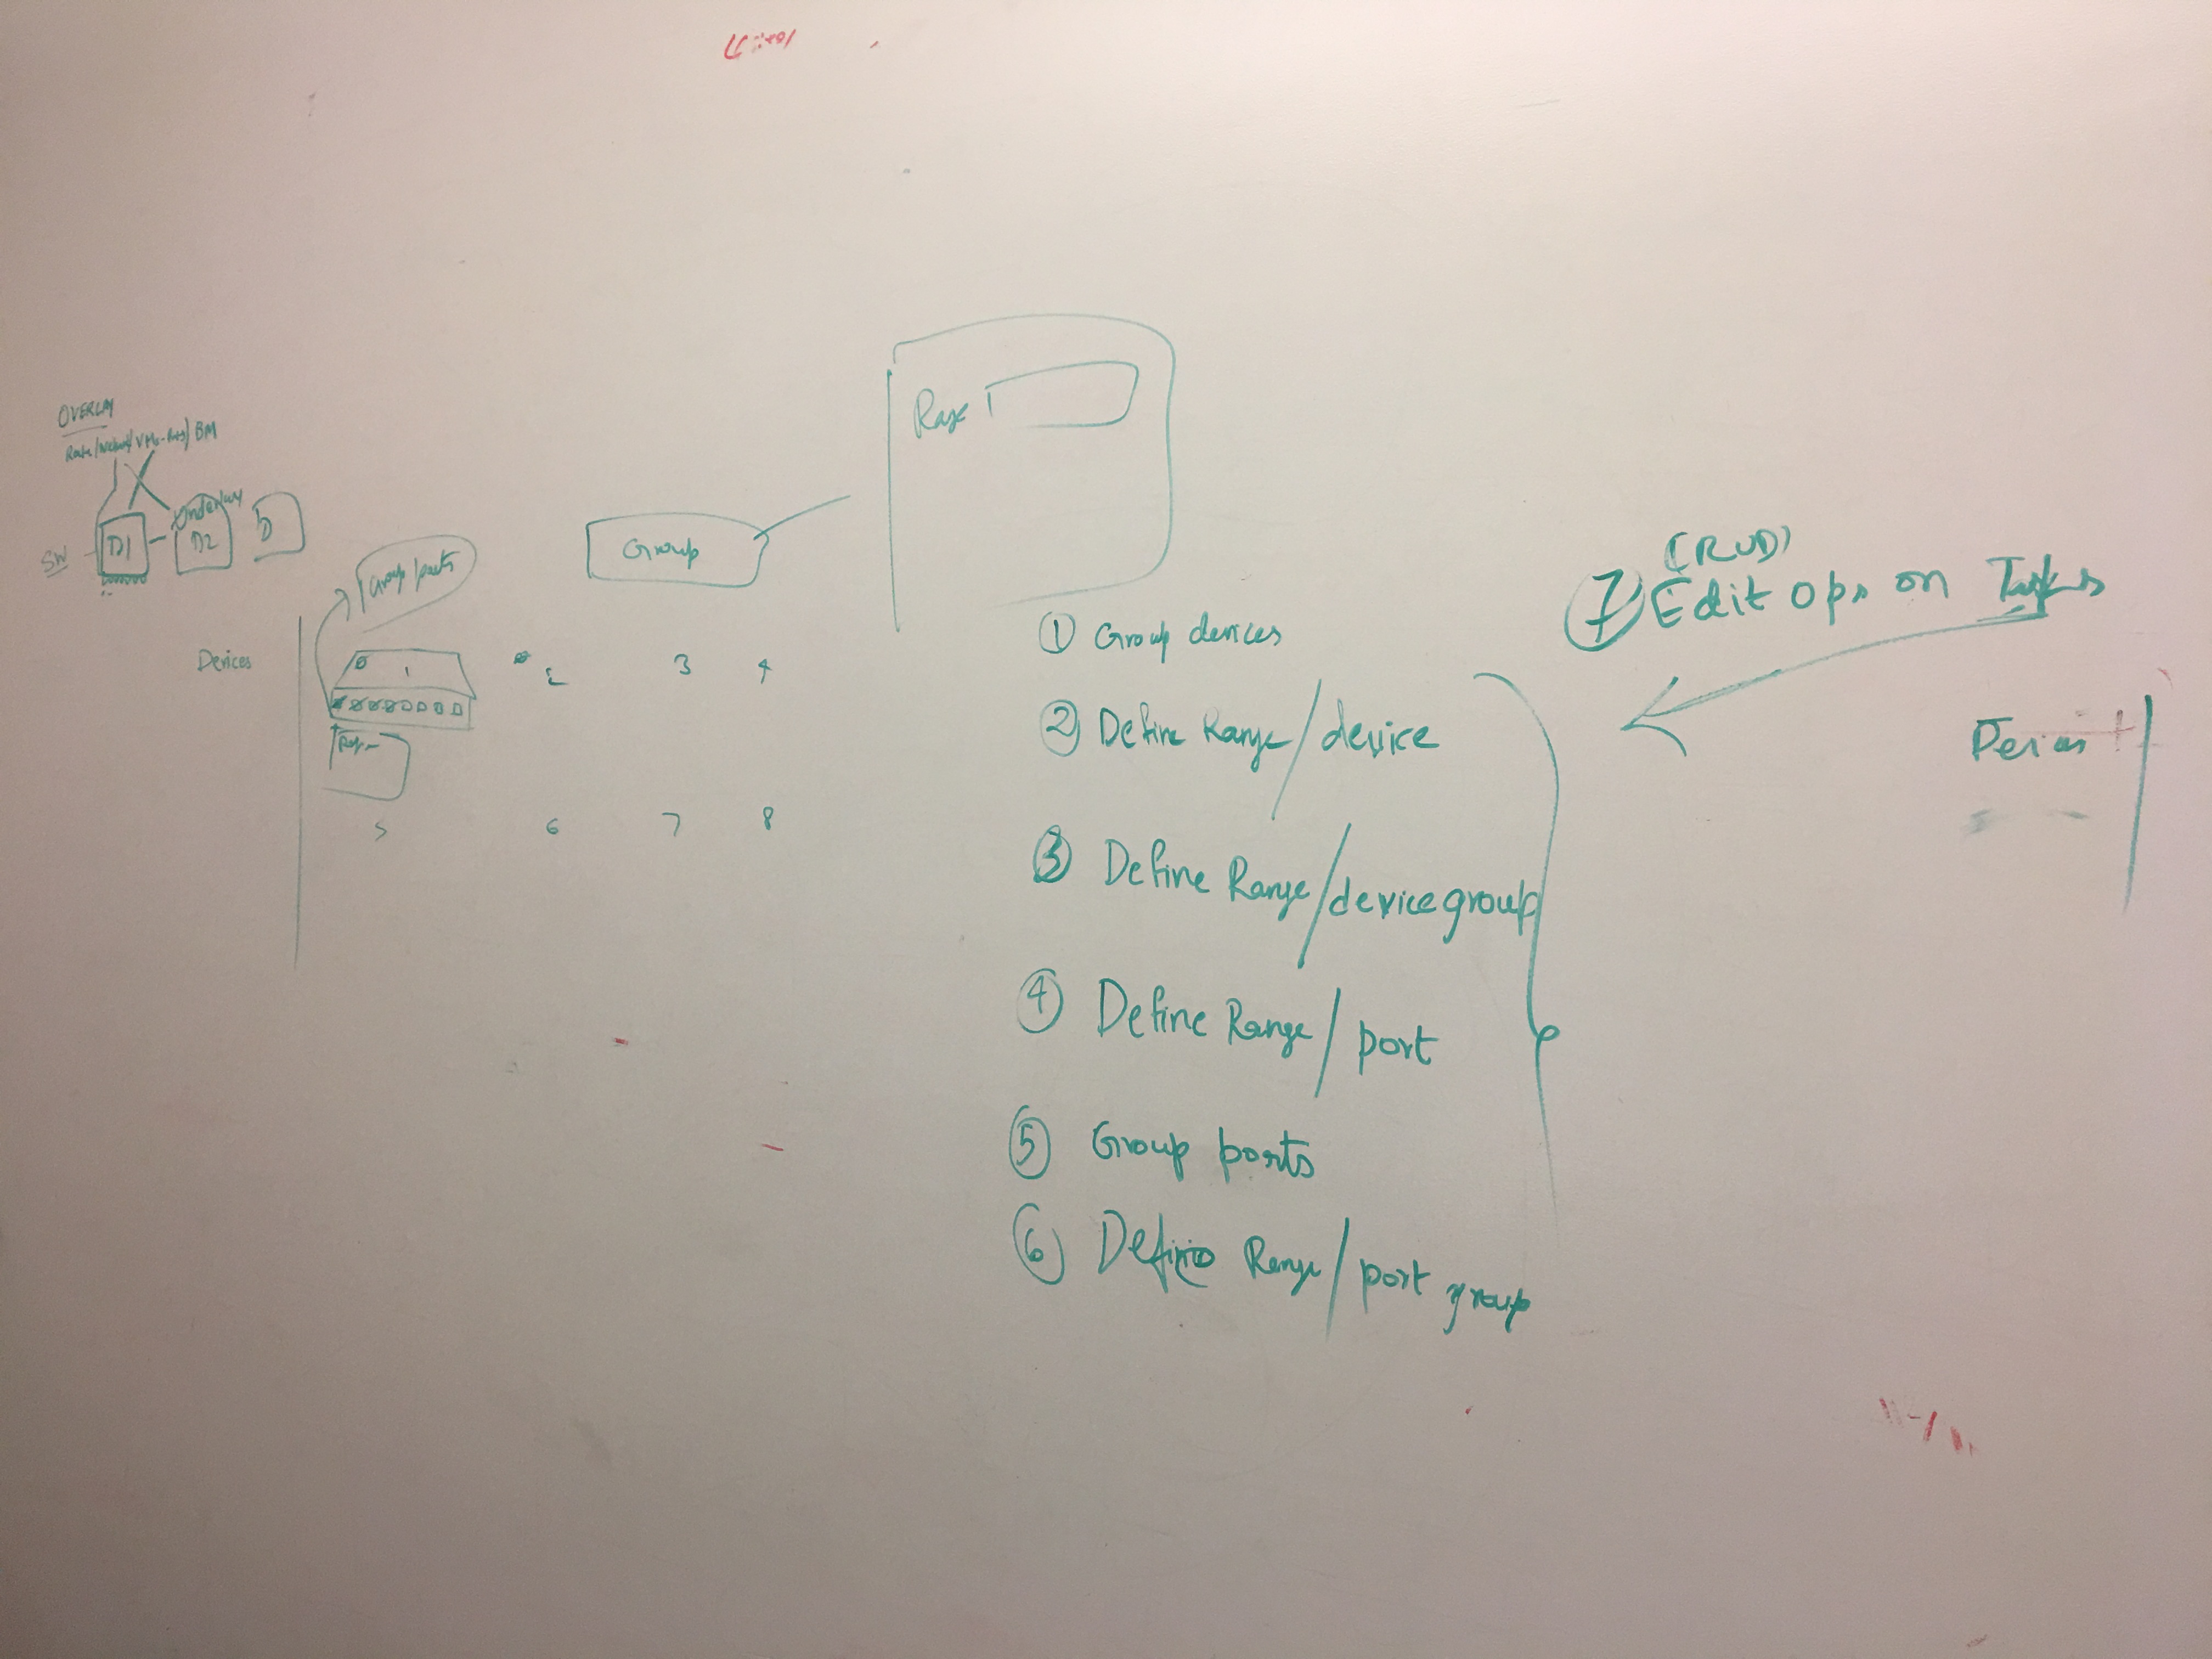 OVERLAY
BM
Underlay
SW
D1
D2
D
Group ports
Group
Devices
1
2
3
4
5
6
7
8
① Group devices
② Define Range/device
③ Define Range/device group
④ Define Range/port
⑤ Group ports
⑥ Define Range/port group
(RUD)
⑦ Edit Ops on Tasks